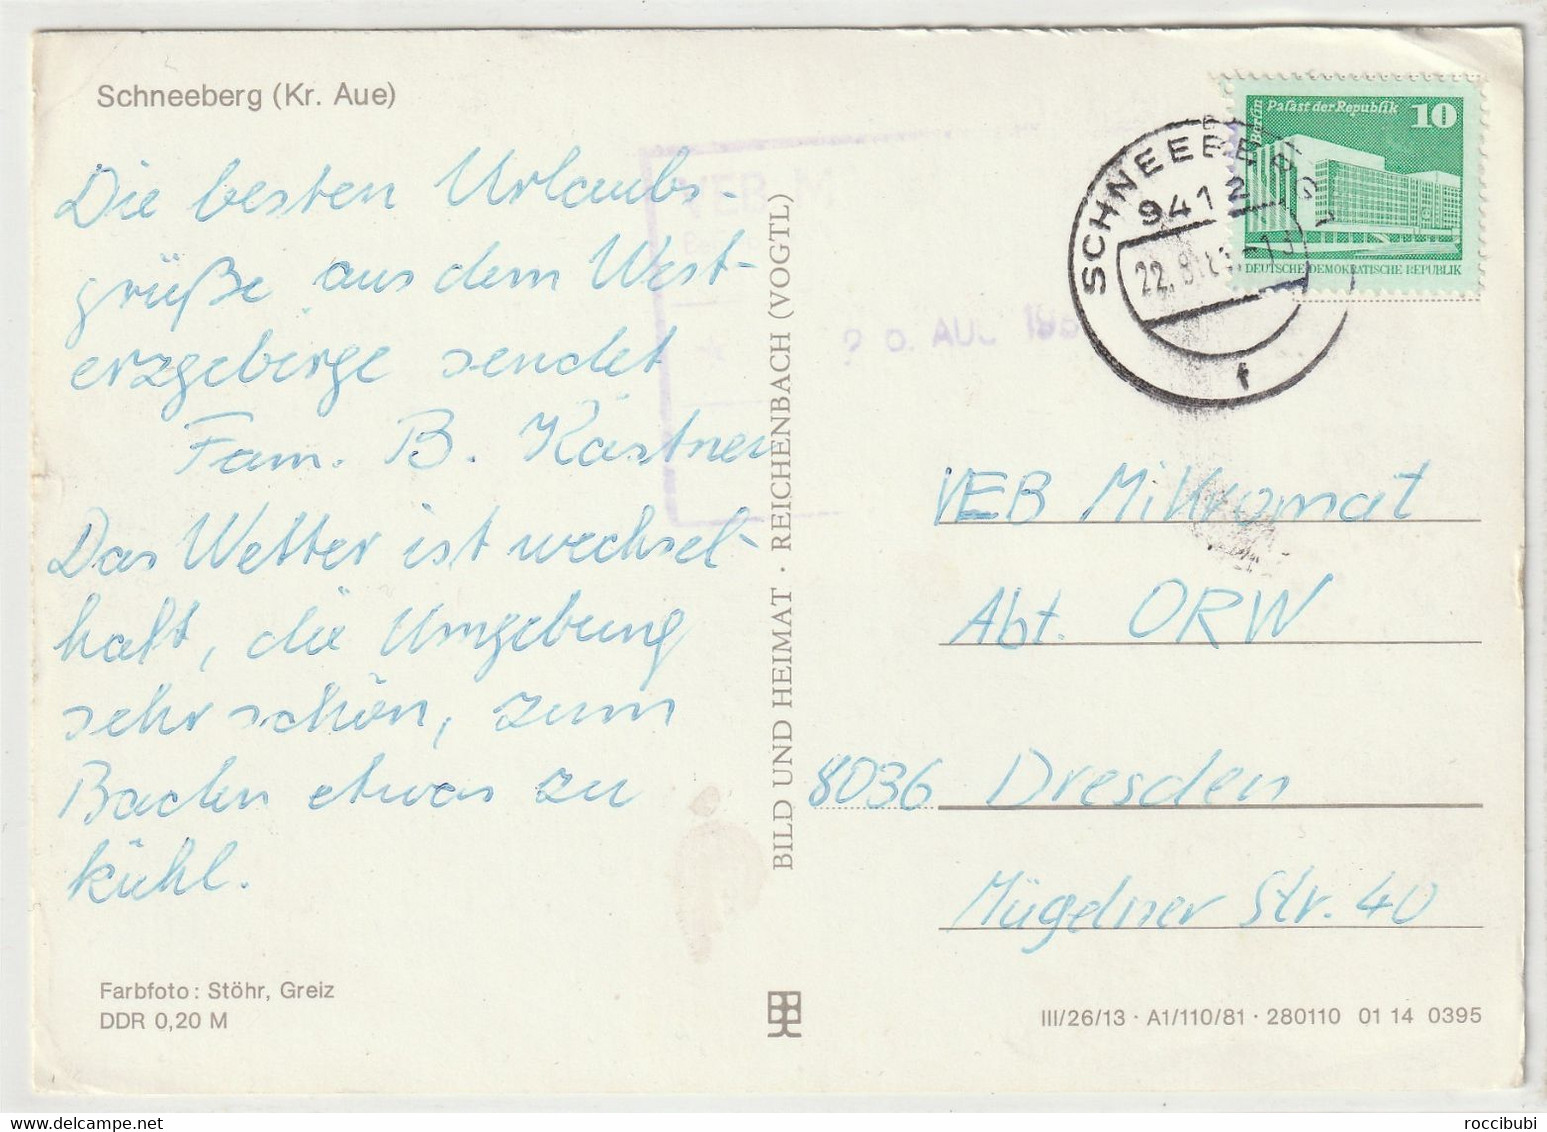 Schneeberg (Kr. Aue)
Die besten Urlaubs-
grüße aus dem West-
erzgebirge sendet
Fam. B. Kästner
Das Wetter ist wechsel-
haft, die Umgebung
sehr schön, zum
Baden etwas zu
kühl.
Farbfoto: Stöhr, Greiz
DDR 0,20 M
BILD UND HEIMAT · REICHENBACH (VOGTL)
VEB M
AUG 198
SCHNEEBERG 1
9412
22. 8.
f
Berlin
Palast der Republik
10
DEUTSCHE DEMOKRATISCHE REPUBLIK
VEB Mikromat
Abt. ORW
8036 Dresden
Mügelner Str. 40
III/26/13 · A1/110/81 · 280110 01 14 0395
roccibubi